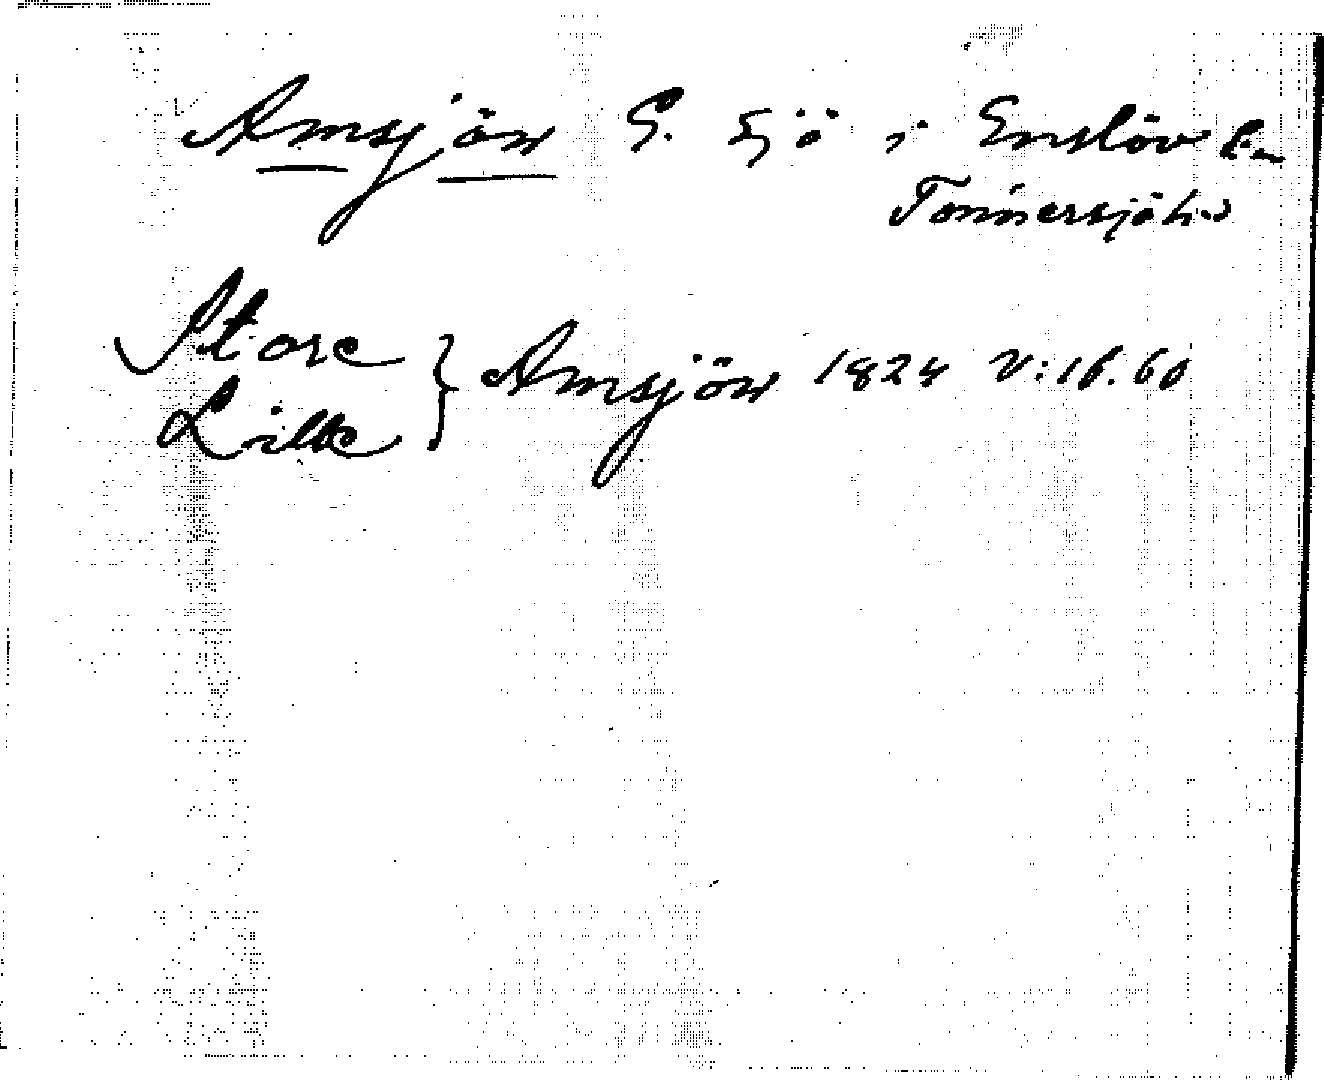 Amsjön S. sjö i Enslöv sn
Tönnersjö hd
Store } Amsjön 1824 V:16.60
Lille